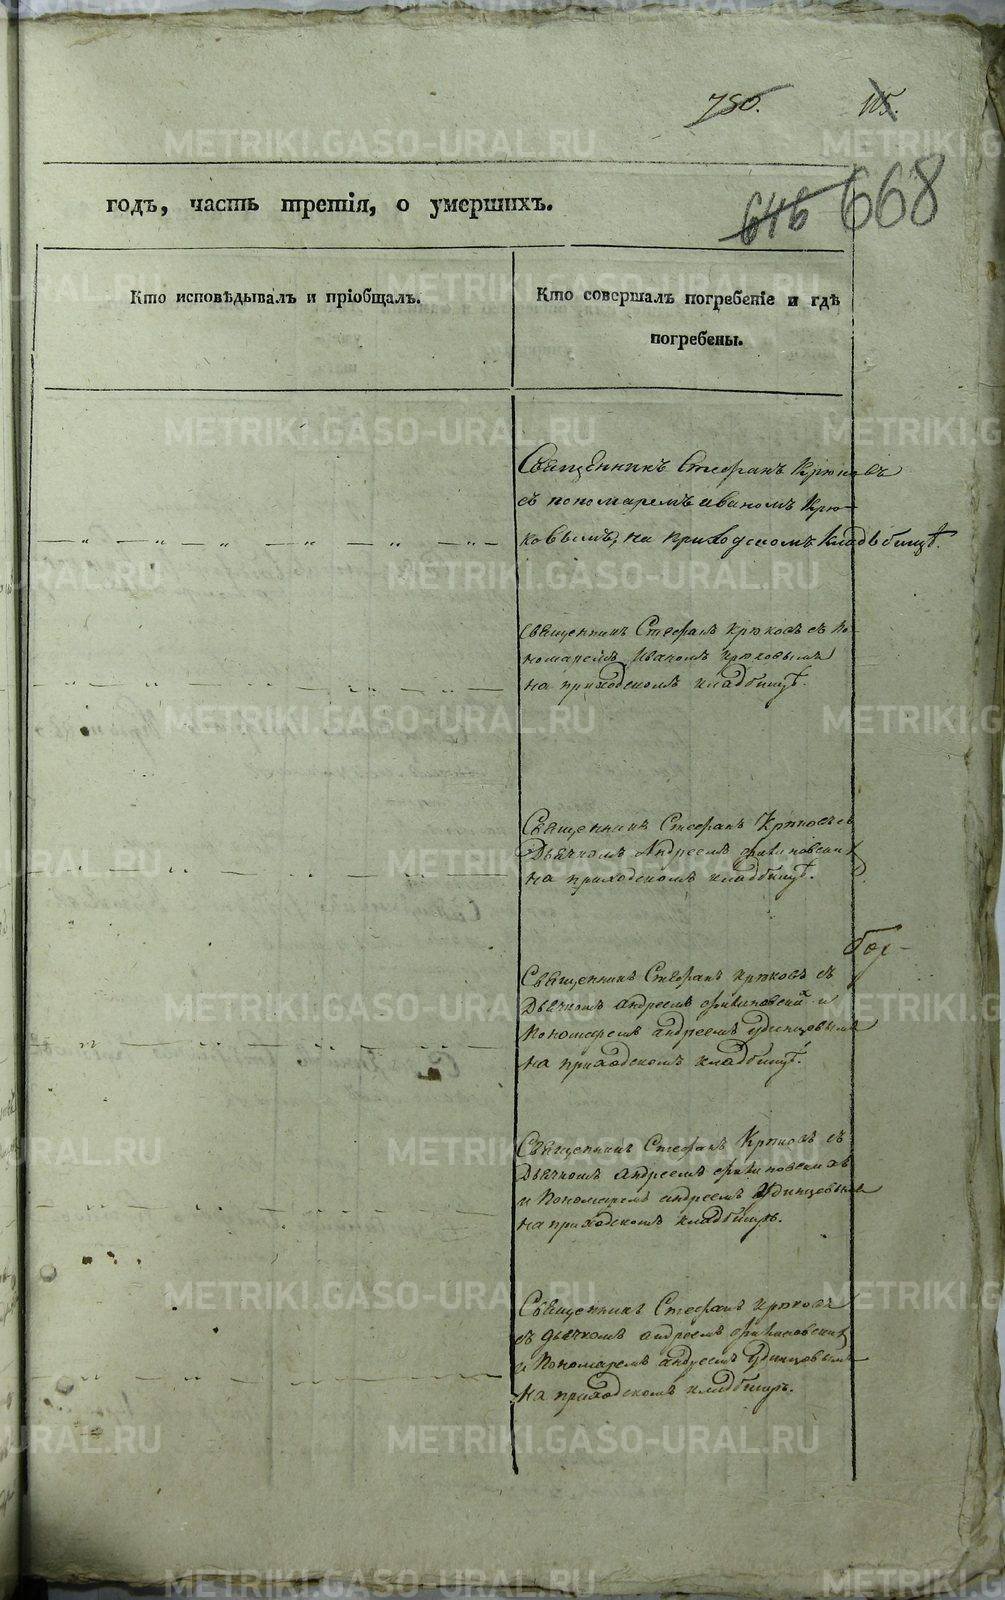 750.
115.
646 668
годъ, часть третія, о умершихъ.
Кто исповѣдывалъ и пріобщалъ.
Кто совершалъ погребеніе и гдѣ
погребены.
Священникъ Стефанъ Крюковъ
съ пономаремъ Иваномъ Крю-
ковымъ, на приходскомъ кладбищѣ.
Священникъ Стефанъ Крюковъ съ по-
номаремъ Иваномъ Крюковымъ
на приходскомъ кладбищѣ.
Священникъ Стефанъ Крюковъ съ
Дьячкомъ Андреемъ
на приходскомъ кладбищѣ.
Священникъ Стефанъ Крюковъ съ
Дьячкомъ Андреемъ и
Пономаремъ Андреемъ Удинцовымъ
на приходскомъ кладбищѣ.
Священникъ Стефанъ Крюковъ съ
Дьячкомъ Андреемъ
и Пономаремъ Андреемъ Удинцевымъ
на приходскомъ кладбищѣ.
Священникъ Стефанъ Крюковъ
съ дьячкомъ Андреемъ
и Пономаремъ Андреемъ Удинцовымъ
на приходскомъ кладбищѣ.
METRIKI.GASO-URAL.RU